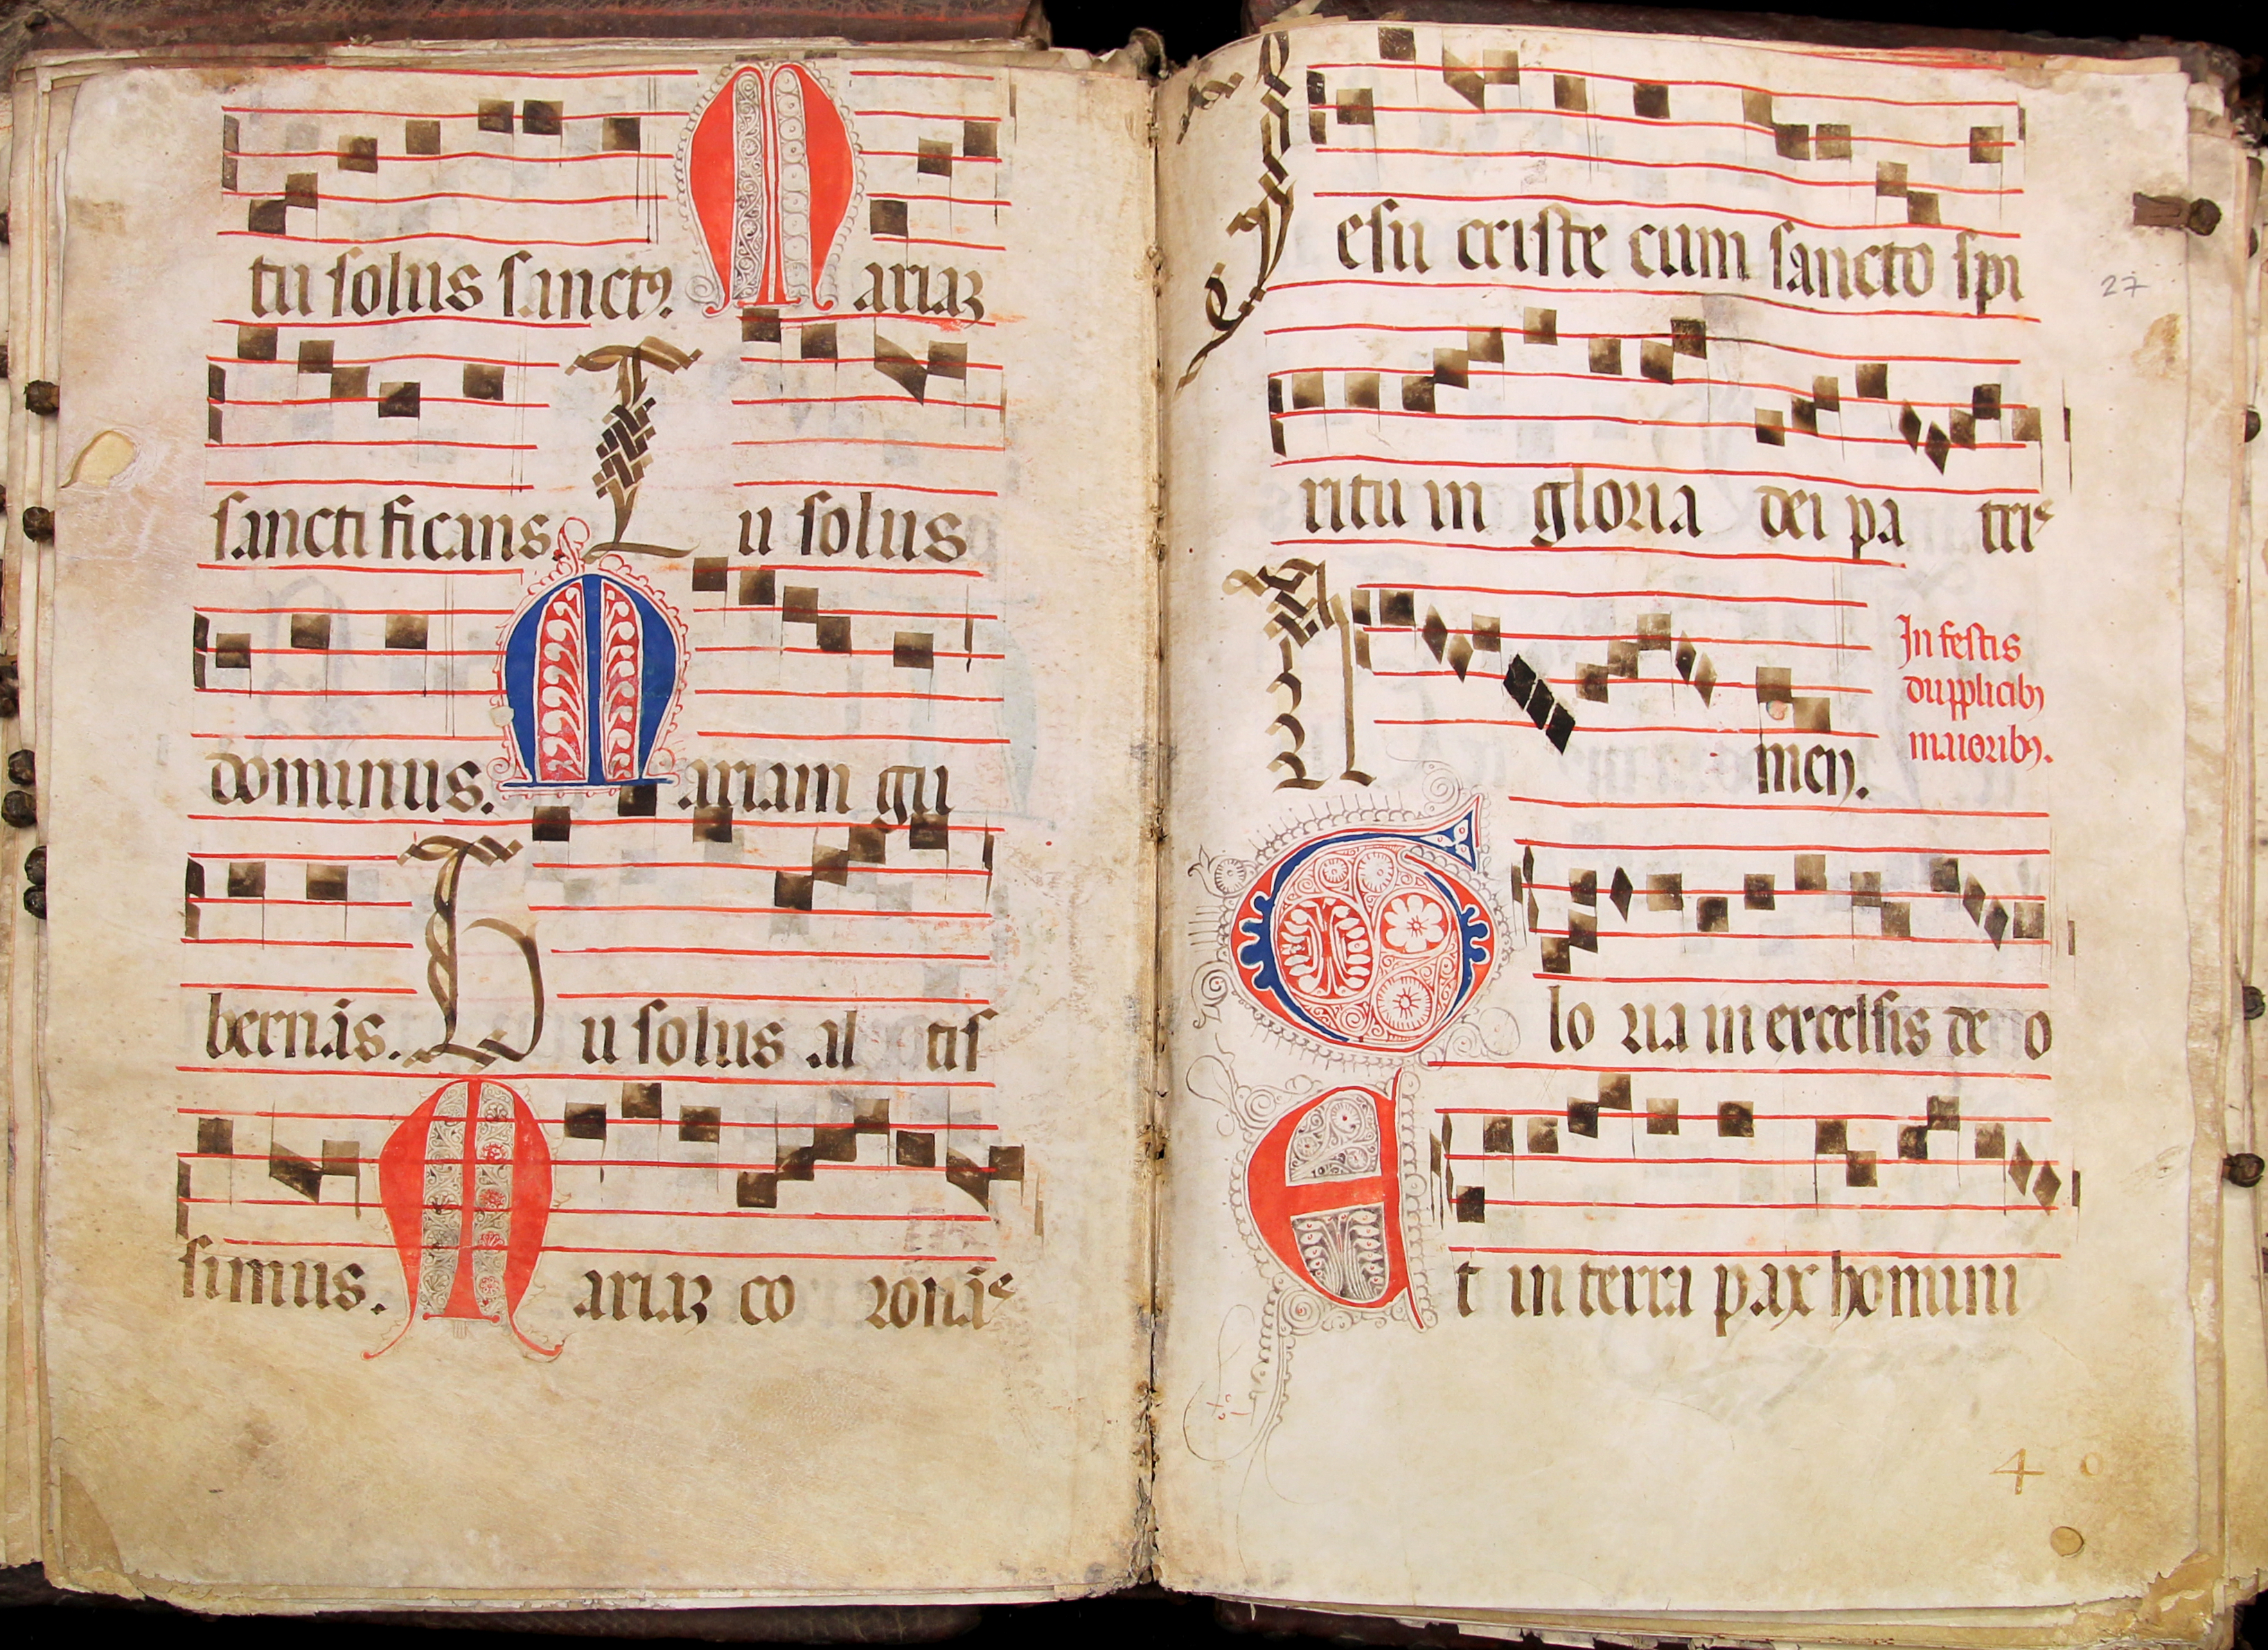 tu solus sanctꝯ. Mariaꝫ
sanctificans. Tu solus
dominus. Mariam gu
bernās. Tu solus altis
simus. Mariaꝫ coronās
Jesu criste cum sancto spi
ritu in gloria dei patris
Amen.
In festis
dupplicibꝯ
maioribꝯ.
Gloria in excelsis deo
Et in terra pax homini
27
4